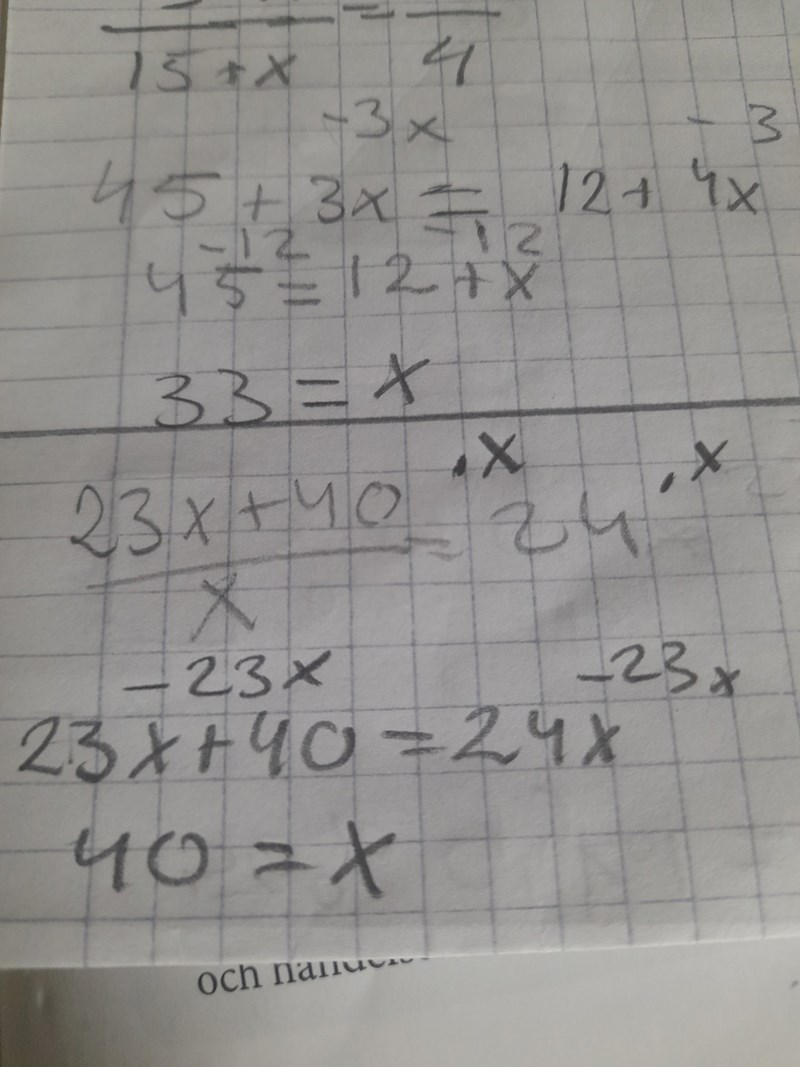 =
15+x 4
-3x - 3
45 + 3x = 12 + 4x
-12 -12
45 = 12 + x
33 = x
.x .x
23x+40 = 24
x
-23x -23x
23x+40 = 24x
40 = x
och